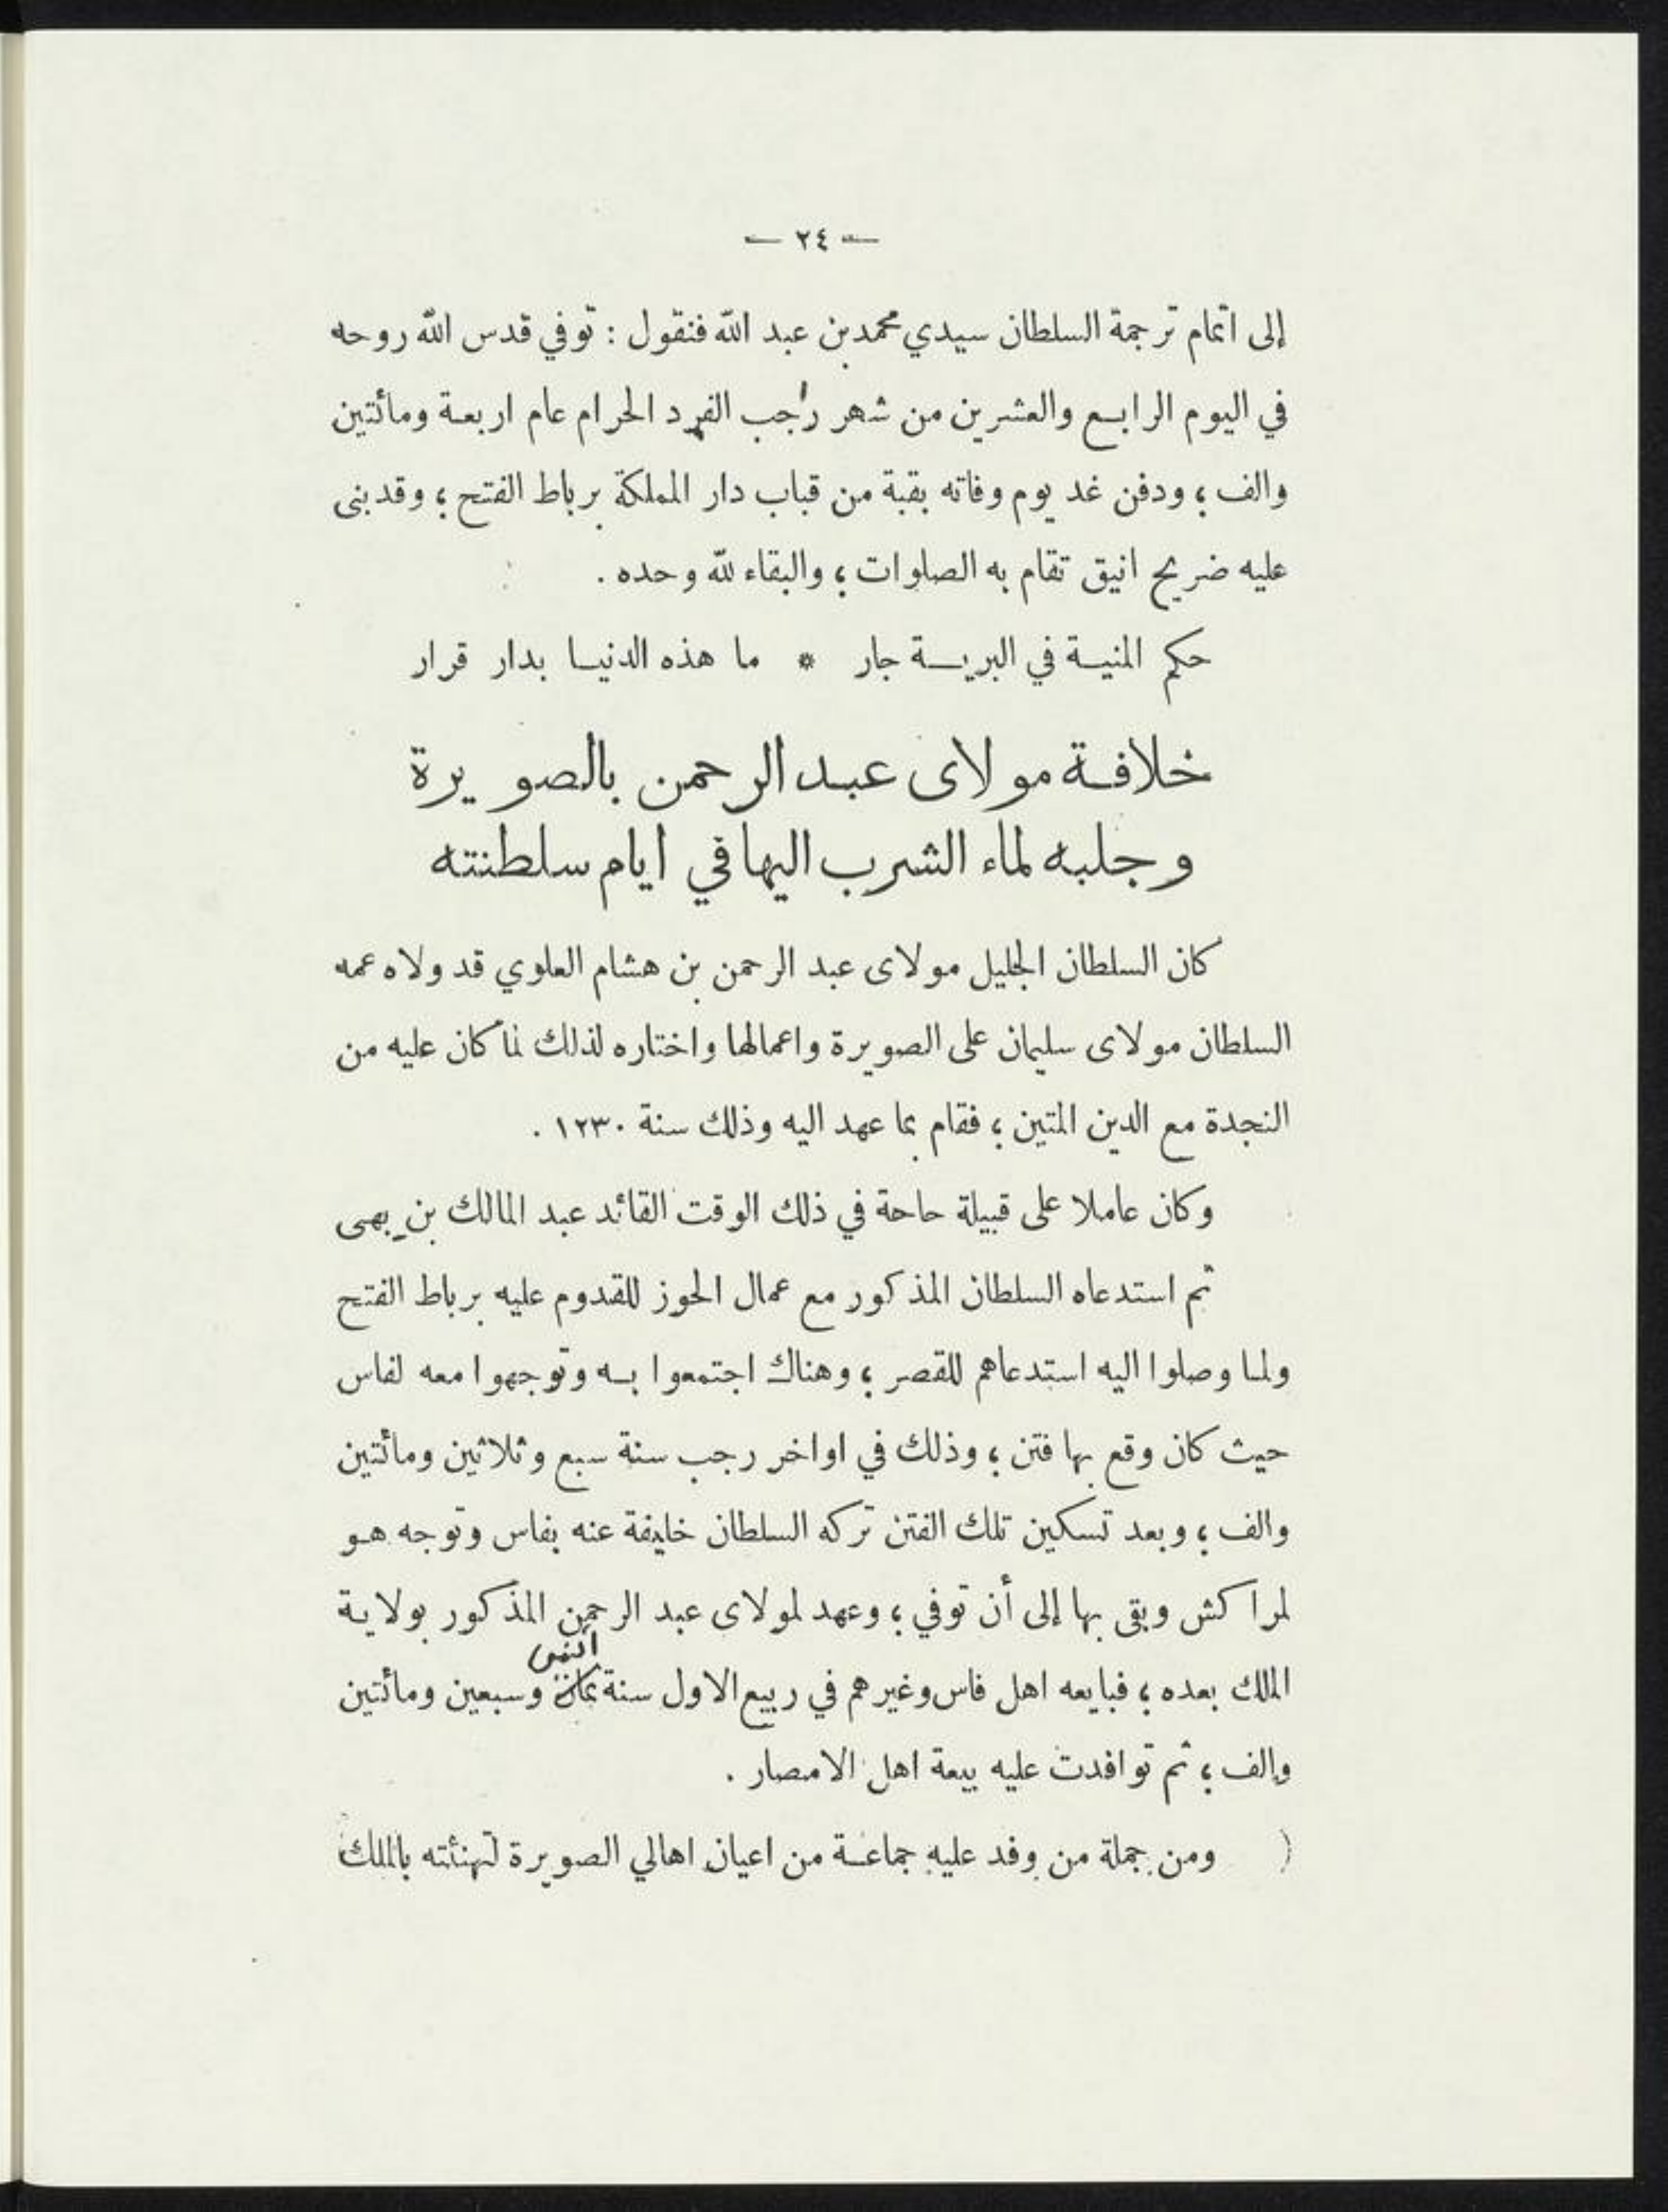 — ٢٤ —
إلى اتمام ترجمة السلطان سيدي محمد بن عبد الله فنقول : توفي قدس الله روحه
في اليوم الرابع والعشرين من شهر راجب الفرد الحرام عام اربعة ومائتين
والف ؛ ودفن غد يوم وفاته بقبة من قباب دار المملكة برباط الفتح ؛ وقد بنى
عليه ضريح انيق تقام به الصلوات ؛ والبقاء لله وحده .
حكم المنية في البرية جار * ما هذه الدنيا بدار قرار
خلافة مولاى عبد الرحمن بالصويرة
وجلبه لماء الشرب اليها في ايام سلطنته
كان السلطان الجليل مولاى عبد الرحمن بن هشام العلوي قد ولاه عمه
السلطان مولاى سليمان على الصويرة واعمالها واختاره لذلك لما كان عليه من
النجدة مع الدين المتين ؛ فقام بما عهد اليه وذلك سنة ١٢٣٠ .
وكان عاملا على قبيلة حاحة في ذلك الوقت القائد عبد المالك بن بهى
ثم استدعاه السلطان المذكور مع عمال الحوز للقدوم عليه برباط الفتح
ولما وصلوا اليه استدعاهم للقصر ؛ وهناك اجتمعوا به وتوجهوا معه لفاس
حيث كان وقع بها فتن ؛ وذلك في اواخر رجب سنة سبع وثلاثين ومائتين
والف ؛ وبعد تسكين تلك الفتن تركه السلطان خليفة عنه بفاس وتوجه هو
لمراكش وبقى بها إلى أن توفي ؛ وعهد لمولاى عبد الرحمن المذكور بولاية
الملك بعده ؛ فبايعه اهل فاس وغيرهم في ربيع الاول سنة ثمان وسبعين ومائتين
والف ؛ ثم توافدت عليه بيعة اهل الامصار .
( ومن جملة من وفد عليه جماعة من اعيان اهالي الصويرة لتهنئته بالملك